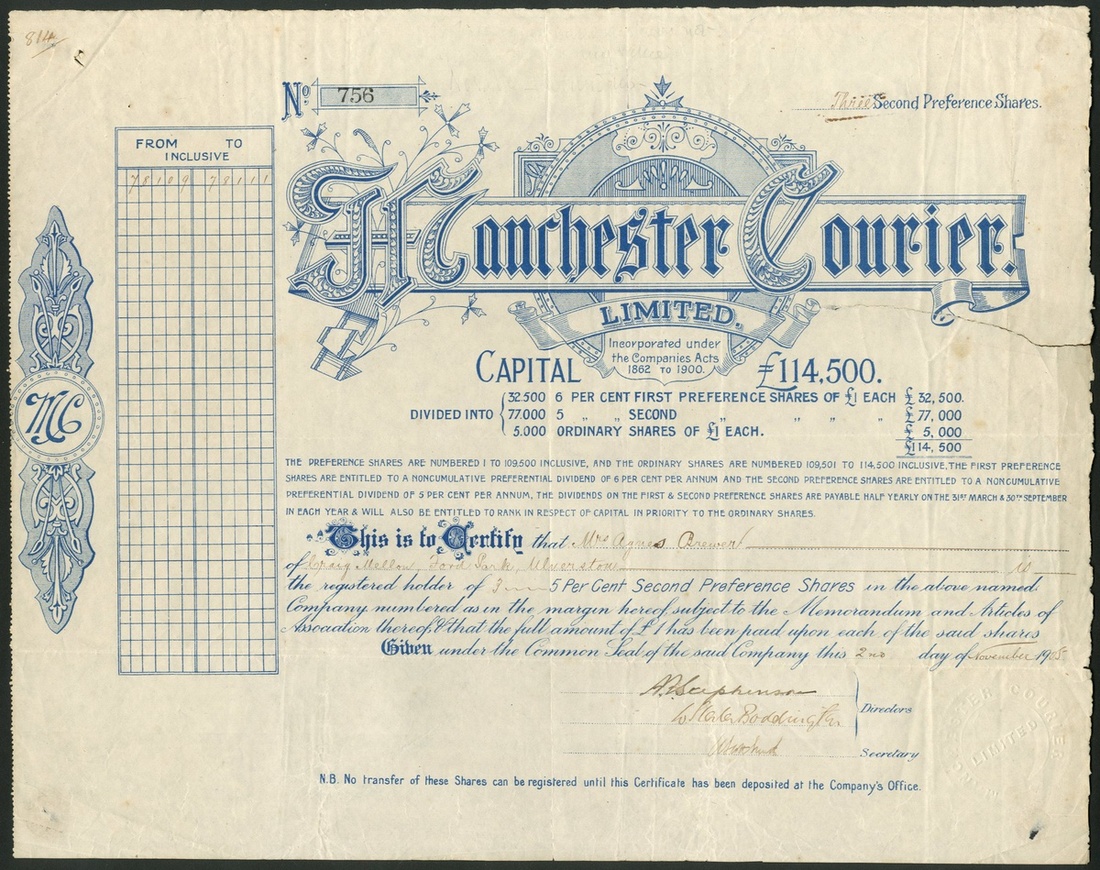 814
Nº 756
Three Second Preference Shares.
FROM TO
INCLUSIVE
78109 78111
Manchester Courier.
LIMITED.
Incorporated under
the Companies Acts
1862 TO 1900.
CAPITAL £114,500.
DIVIDED INTO
32.500 6 PER CENT FIRST PREFERENCE SHARES OF £1 EACH £ 32,500.
77.000 5 " " SECOND " " " " £ 77,000
5.000 ORDINARY SHARES OF £1 EACH. £ 5,000
£114,500
MC
THE PREFERENCE SHARES ARE NUMBERED 1 TO 109,500 INCLUSIVE, AND THE ORDINARY SHARES ARE NUMBERED 109,501 TO 114,500 INCLUSIVE, THE FIRST PREFERENCE
SHARES ARE ENTITLED TO A NONCUMULATIVE PREFERENTIAL DIVIDEND OF 6 PER CENT PER ANNUM AND THE SECOND PREFERENCE SHARES ARE ENTITLED TO A NONCUMULATIVE
PREFERENTIAL DIVIDEND OF 5 PER CENT PER ANNUM, THE DIVIDENDS ON THE FIRST & SECOND PREFERENCE SHARES ARE PAYABLE HALF YEARLY ON THE 31ST MARCH & 30TH SEPTEMBER
IN EACH YEAR & WILL ALSO BE ENTITLED TO RANK IN RESPECT OF CAPITAL IN PRIORITY TO THE ORDINARY SHARES.
This is to Certify that Mrs Agnes Brewer
of Craig Mellon, Ford Park, Ulverston is
the registered holder of 3 5 Per Cent Second Preference Shares in the above named
Company numbered as in the margin hereof, subject to the Memorandum and Articles of
Association thereof, & that the full amount of £1 has been paid upon each of the said shares
Given under the Common Seal of the said Company this 2nd day of November 1905
Stephenson
Slater Boddington
Directors
Secretary
MANCHESTER COURIER LIMITED
N.B. No transfer of these Shares can be registered until this Certificate has been deposited at the Company's Office.